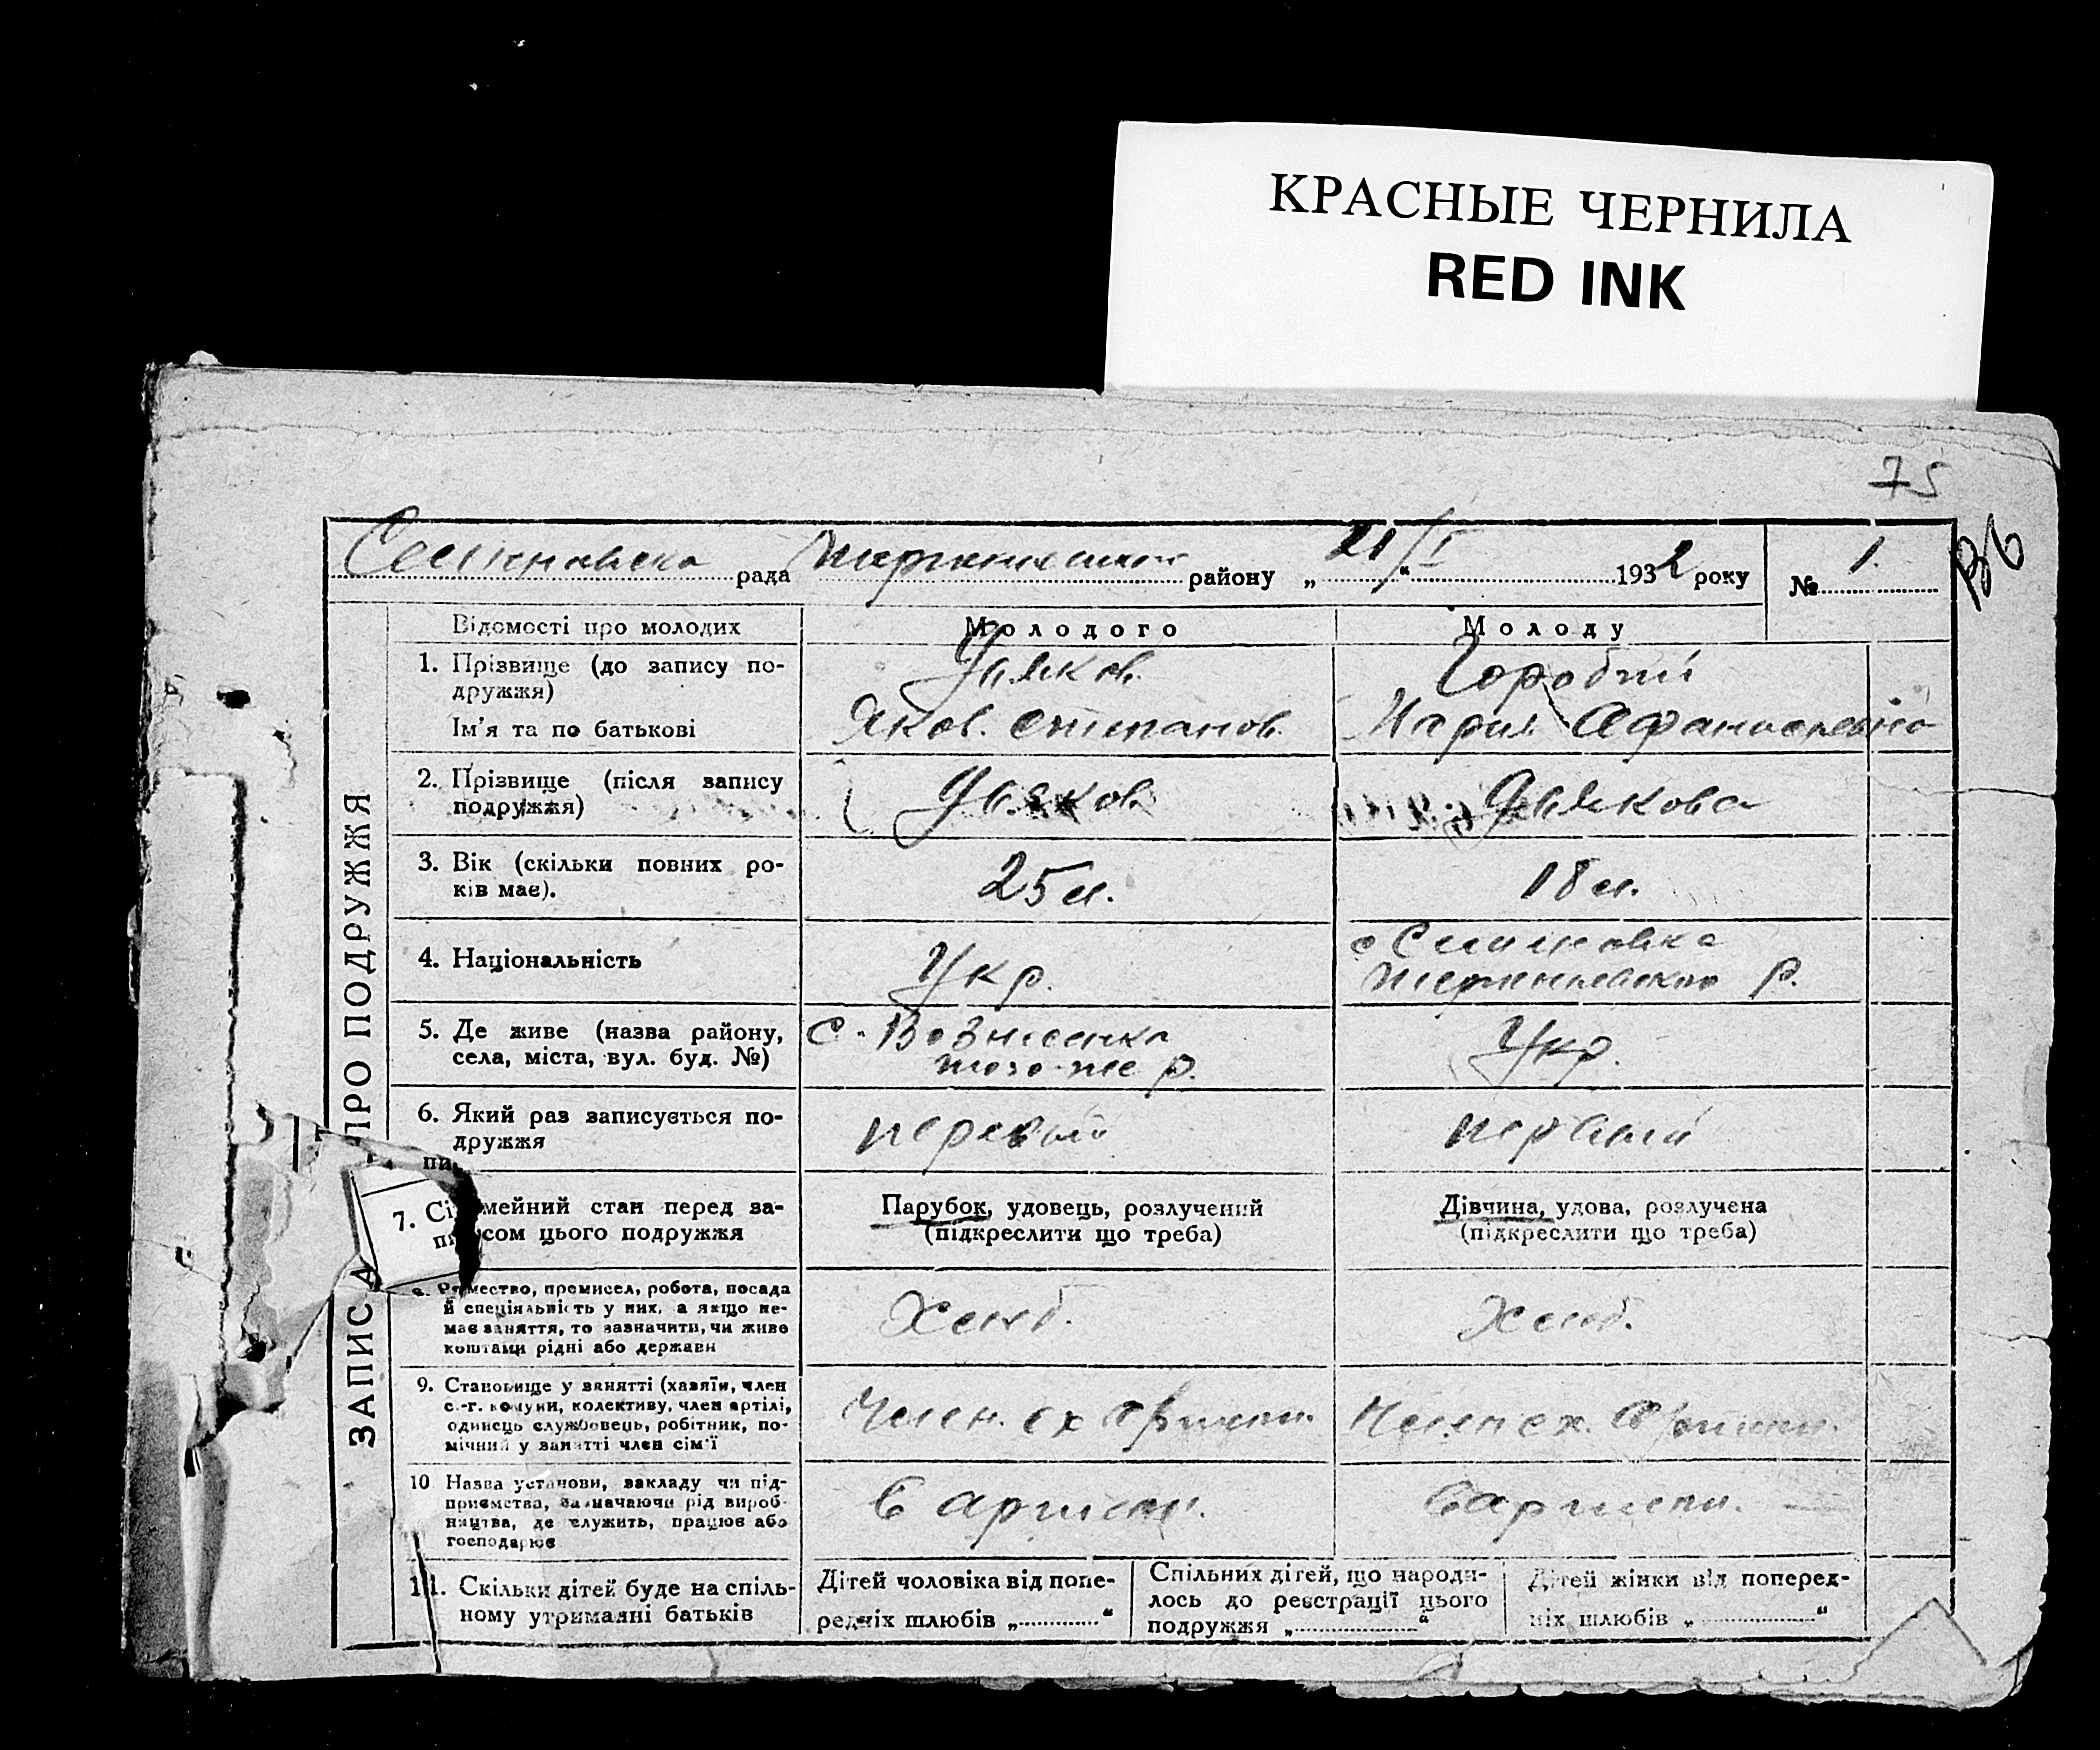 КРАСНЫЕ ЧЕРНИЛА
RED INK
75
рада району „ 21/I “ 1932 року № 1.
ЗАПИС ПРО ПОДРУЖЖЯ
Відомості про молодих
Молодого
Молоду
1. Прізвище (до запису по-
дружжя)
Ім’я та по батькові
Дьяков.
Яков. Степанов.
Городний
Мария Афанасиевна
2. Прізвище (після запису
подружжя)
Дьяков
Дьякова
3. Вік (скільки повних ро-
ків має).
25 л.
18 л.
4. Національність
Укр.
с Семеновка
р.
5. Де живе (назва району,
села, міста, вул. буд. №)
с. Вознесенка
того-же р.
Укр.
6. Який раз записується по-
дружжя
первый
первый
7. Сімейний стан перед за-
писом цього подружжя
Парубок, удовець, розлучений
(підкреслити що треба)
Дівчина, удова, розлучена
(підкреслити що треба)
Ремество, промисел, робота, посада
й спеціяльність у них, а якщо не-
має заняття, то зазначити, чи живе
коштами рідні або держави
Хлеб.
Хлеб.
9. Становище у занятті (хазяїн, член
с.-г. комуни, колективу, член артілі,
одинець службовець, робітник, по-
мічний у занятті член сім’ї
Член. сх Артели.
Член сх. Артели.
10 Назва установи, закладу чи під-
приємства, зазначаючи рід вироб-
ництва, де служить, працює або
господарює
В артели.
В артели.
11. Скільки дітей буде на спіль-
ному утриманні батьків
Дітей чоловіка від попе-
редніх шлюбів „ “
Спільних дітей, що народи-
лось до реєстрації цього
подружжя „ “
Дітей жінки від поперед-
ніх шлюбів „ “